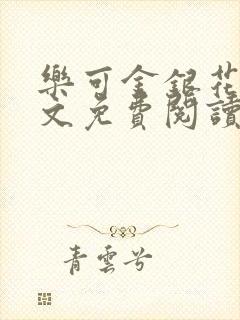 樂可金銀花
文免費閱讀
青雲兮